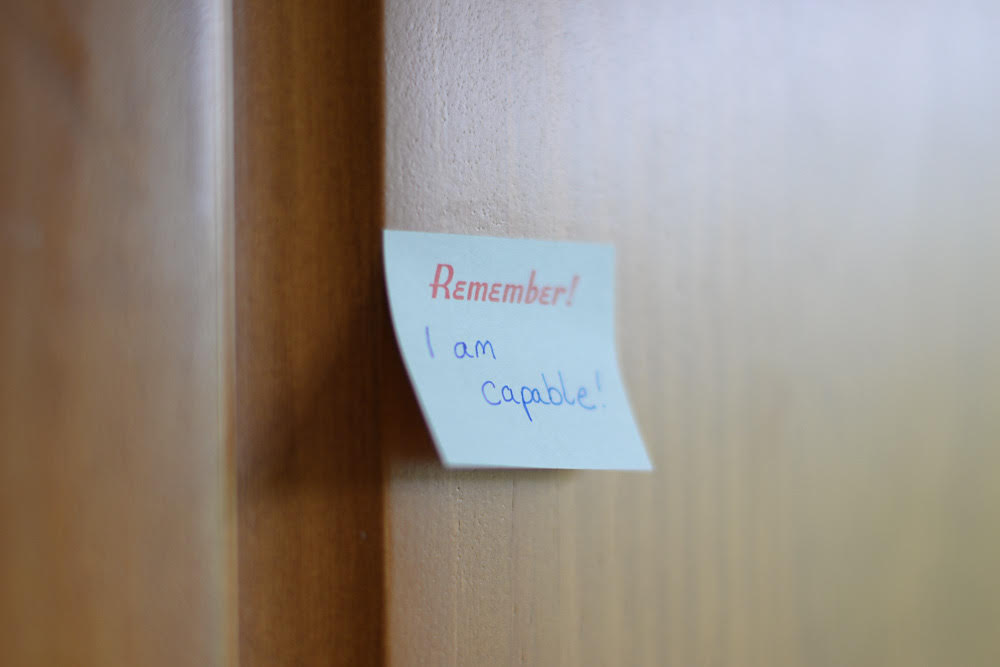 Remember!
I am
capable!